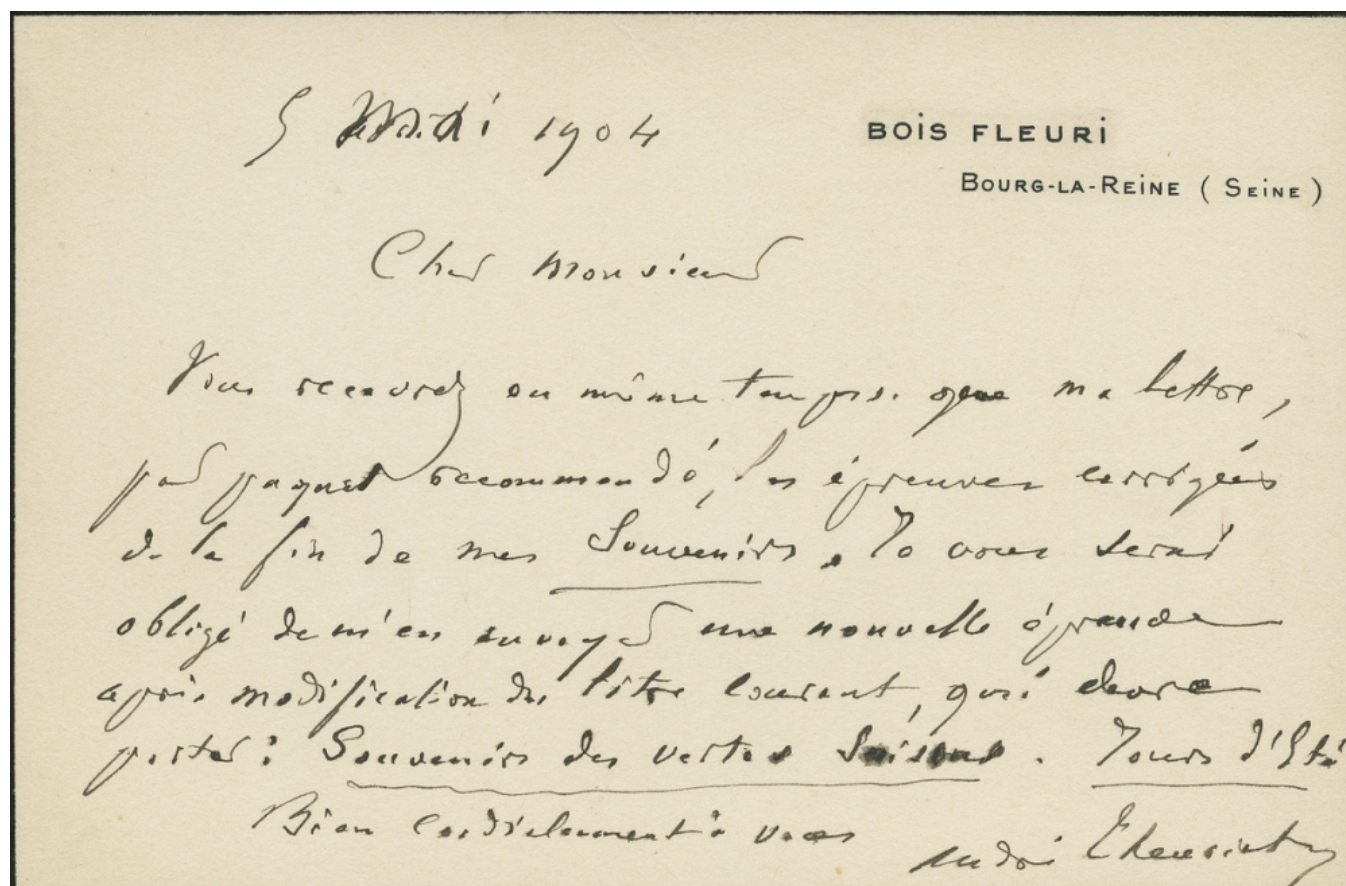 5 Mai 1904
BOIS FLEURI
BOURG-LA-REINE (SEINE)
Cher Monsieur
Vous recevrez en même temps que ma lettre,
par paquet recommandé, les épreuves corrigées
de la fin de mes Souvenirs. Je vous serai
obligé de m'en envoyer une nouvelle épreuve
après modification du titre courant, qui devra
porter : Souvenirs des vertes Saisons. Jours d'Eté
Bien cordialement à vous
André Theuriet